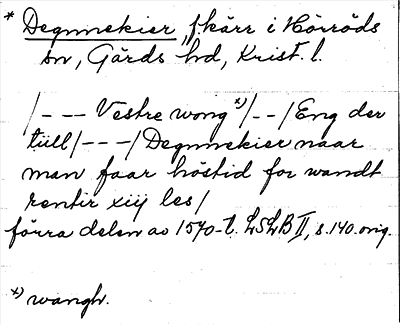 * Degnnekier, f. kärr i Hörröds
sn, Gärds hd, Krist. l.
/--- Vestre wong *)/--/Eng der
tiill/---/Degnnekier naar
man faar höstid for wandt
rentir xiij les/
förra delen av 1570-t. LSLB II, s. 140. orig.
*) wangh.